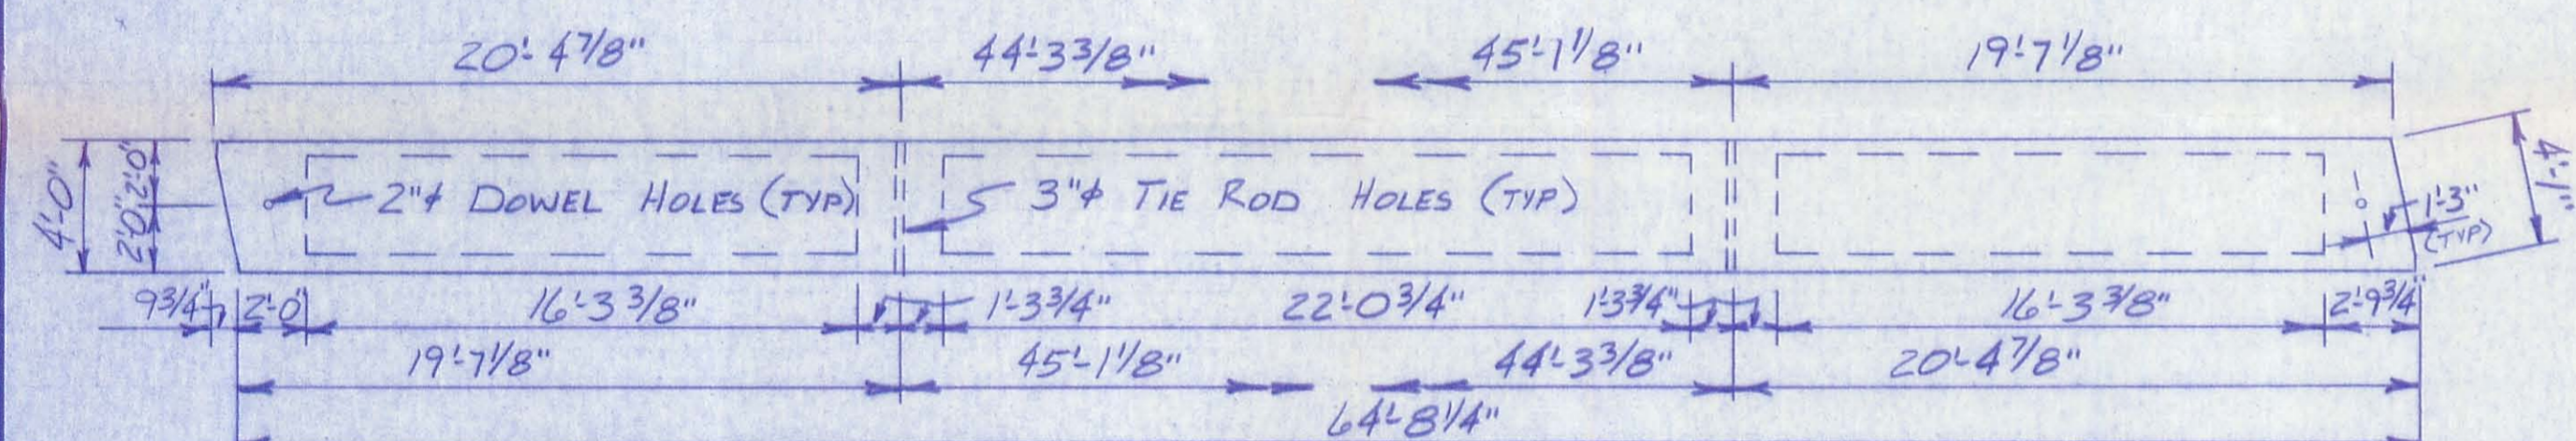 20'-4 7/8" 44'-3 3/8" 45'-1 1/8" 19'-7 1/8"
4'-0" 2'-0" 2'-0" 2"ϕ DOWEL HOLES (TYP) 3"ϕ TIE ROD HOLES (TYP) 1'-3" (TYP) 4'-1"
9 3/4" 2'-0" 16'-3 3/8" 1'-3 3/4" 22'-0 3/4" 1'-3 3/4" 16'-3 3/8" 2'-9 3/4"
19'-7 1/8" 45'-1 1/8" 44'-3 3/8" 20'-4 7/8"
64'-8 1/4"